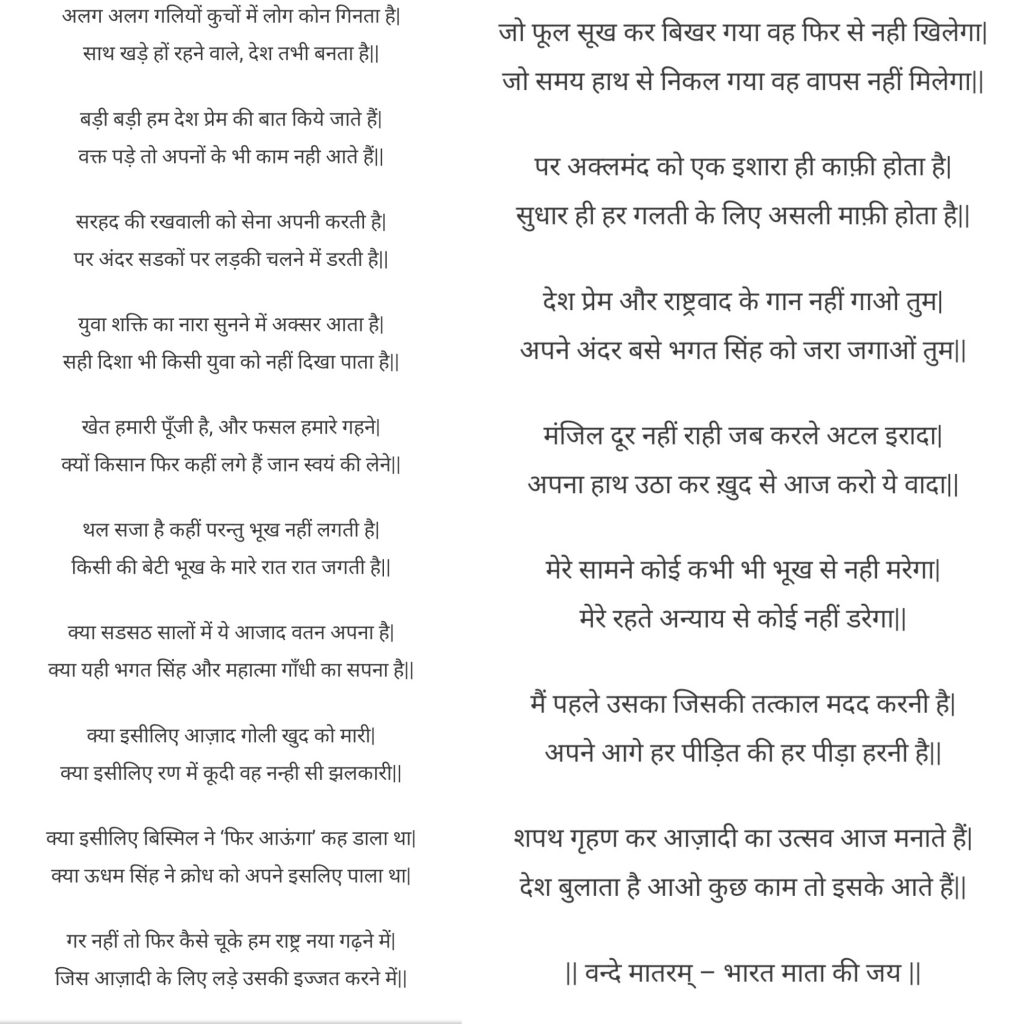 अलग अलग गलियों कुचों में लोग कोन गिनता है|
साथ खड़े हों रहने वाले, देश तभी बनता है||
बड़ी बड़ी हम देश प्रेम की बात किये जाते हैं|
वक्त पड़े तो अपनों के भी काम नही आते हैं||
सरहद की रखवाली को सेना अपनी करती है|
पर अंदर सडकों पर लड़की चलने में डरती है||
युवा शक्ति का नारा सुनने में अक्सर आता है|
सही दिशा भी किसी युवा को नहीं दिखा पाता है||
खेत हमारी पूँजी है, और फसल हमारे गहने|
क्यों किसान फिर कहीं लगे हैं जान स्वयं की लेने||
थल सजा है कहीं परन्तु भूख नहीं लगती है|
किसी की बेटी भूख के मारे रात रात जगती है||
क्या सडसठ सालों में ये आजाद वतन अपना है|
क्या यही भगत सिंह और महात्मा गाँधी का सपना है||
क्या इसीलिए आज़ाद गोली खुद को मारी|
क्या इसीलिए रण में कूदी वह नन्ही सी झलकारी||
क्या इसीलिए बिस्मिल ने ‘फिर आऊंगा’ कह डाला था|
क्या ऊधम सिंह ने क्रोध को अपने इसलिए पाला था|
गर नहीं तो फिर कैसे चूके हम राष्ट्र नया गढ़ने में|
जिस आज़ादी के लिए लड़े उसकी इज्जत करने में||
जो फूल सूख कर बिखर गया वह फिर से नही खिलेगा|
जो समय हाथ से निकल गया वह वापस नहीं मिलेगा||
पर अक्लमंद को एक इशारा ही काफ़ी होता है|
सुधार ही हर गलती के लिए असली माफ़ी होता है||
देश प्रेम और राष्ट्रवाद के गान नहीं गाओ तुम|
अपने अंदर बसे भगत सिंह को जरा जगाओं तुम||
मंजिल दूर नहीं राही जब करले अटल इरादा|
अपना हाथ उठा कर ख़ुद से आज करो ये वादा||
मेरे सामने कोई कभी भी भूख से नही मरेगा|
मेरे रहते अन्याय से कोई नहीं डरेगा||
मैं पहले उसका जिसकी तत्काल मदद करनी है|
अपने आगे हर पीड़ित की हर पीड़ा हरनी है||
शपथ गृहण कर आज़ादी का उत्सव आज मनाते हैं|
देश बुलाता है आओ कुछ काम तो इसके आते हैं||
|| वन्दे मातरम् – भारत माता की जय ||